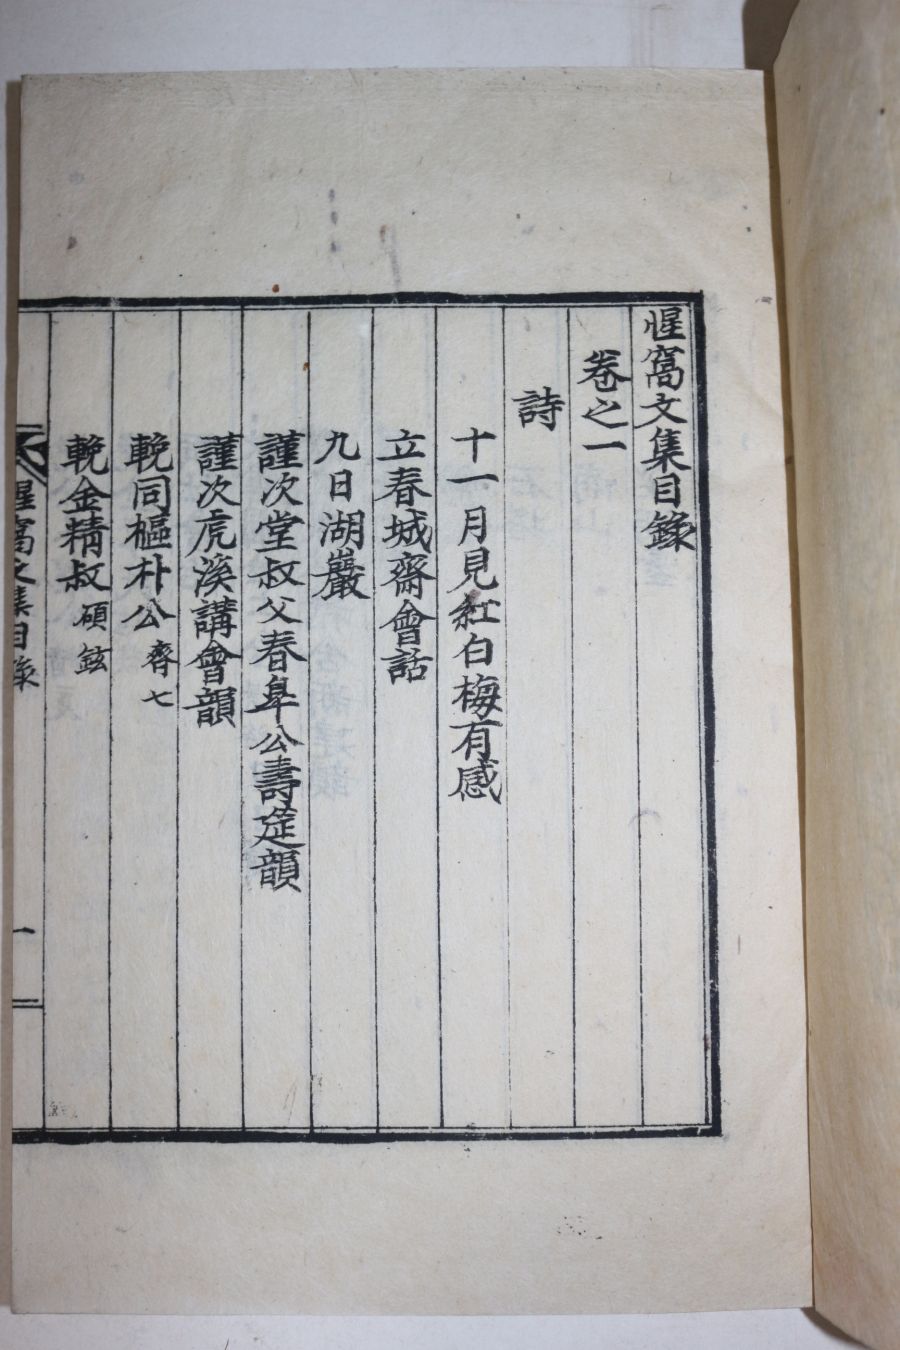 惺窩文集目錄
卷之一
詩
十一月見紅白梅有感
立春城齋會話
九日湖巖
謹次堂叔父春皐公壽筵韻
謹次虎溪講會韻
輓同樞朴公齊七
輓金精叔碩鉉
惺窩文集目錄
一